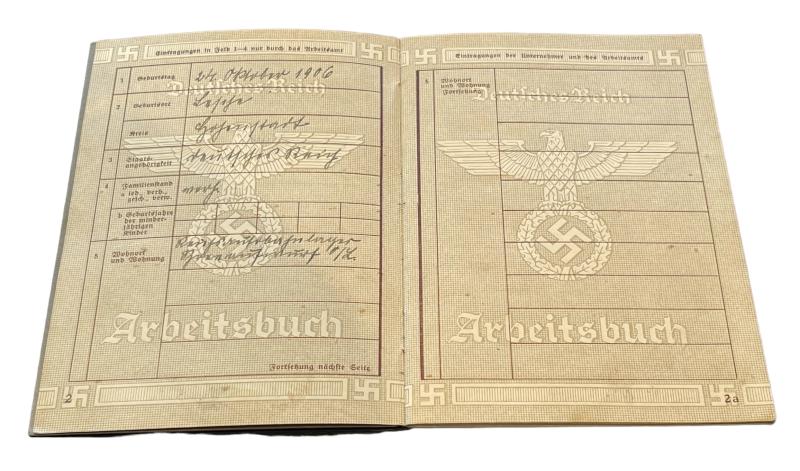 Eintragungen in Feld 1—4 nur durch das Arbeitsamt
Deutsches Reich
1 Geburtstag 24. Oktober 1906
2 Geburtsort Lesche
Kreis Hohenstadt
3 Staats-
angehörigkeit Deutsches Reich
4 Familienstand
a led., verh.,
gesch., verw. verh.
b Geburtsjahre
der minder-
jährigen
Kinder
5 Wohnort
und Wohnung
Arbeitsbuch
Fortsetzung nächste Seite
2
Eintragungen der Unternehmer und des Arbeitsamts
5 Wohnort
und Wohnung
Fortsetzung
Deutsches Reich
Arbeitsbuch
2a